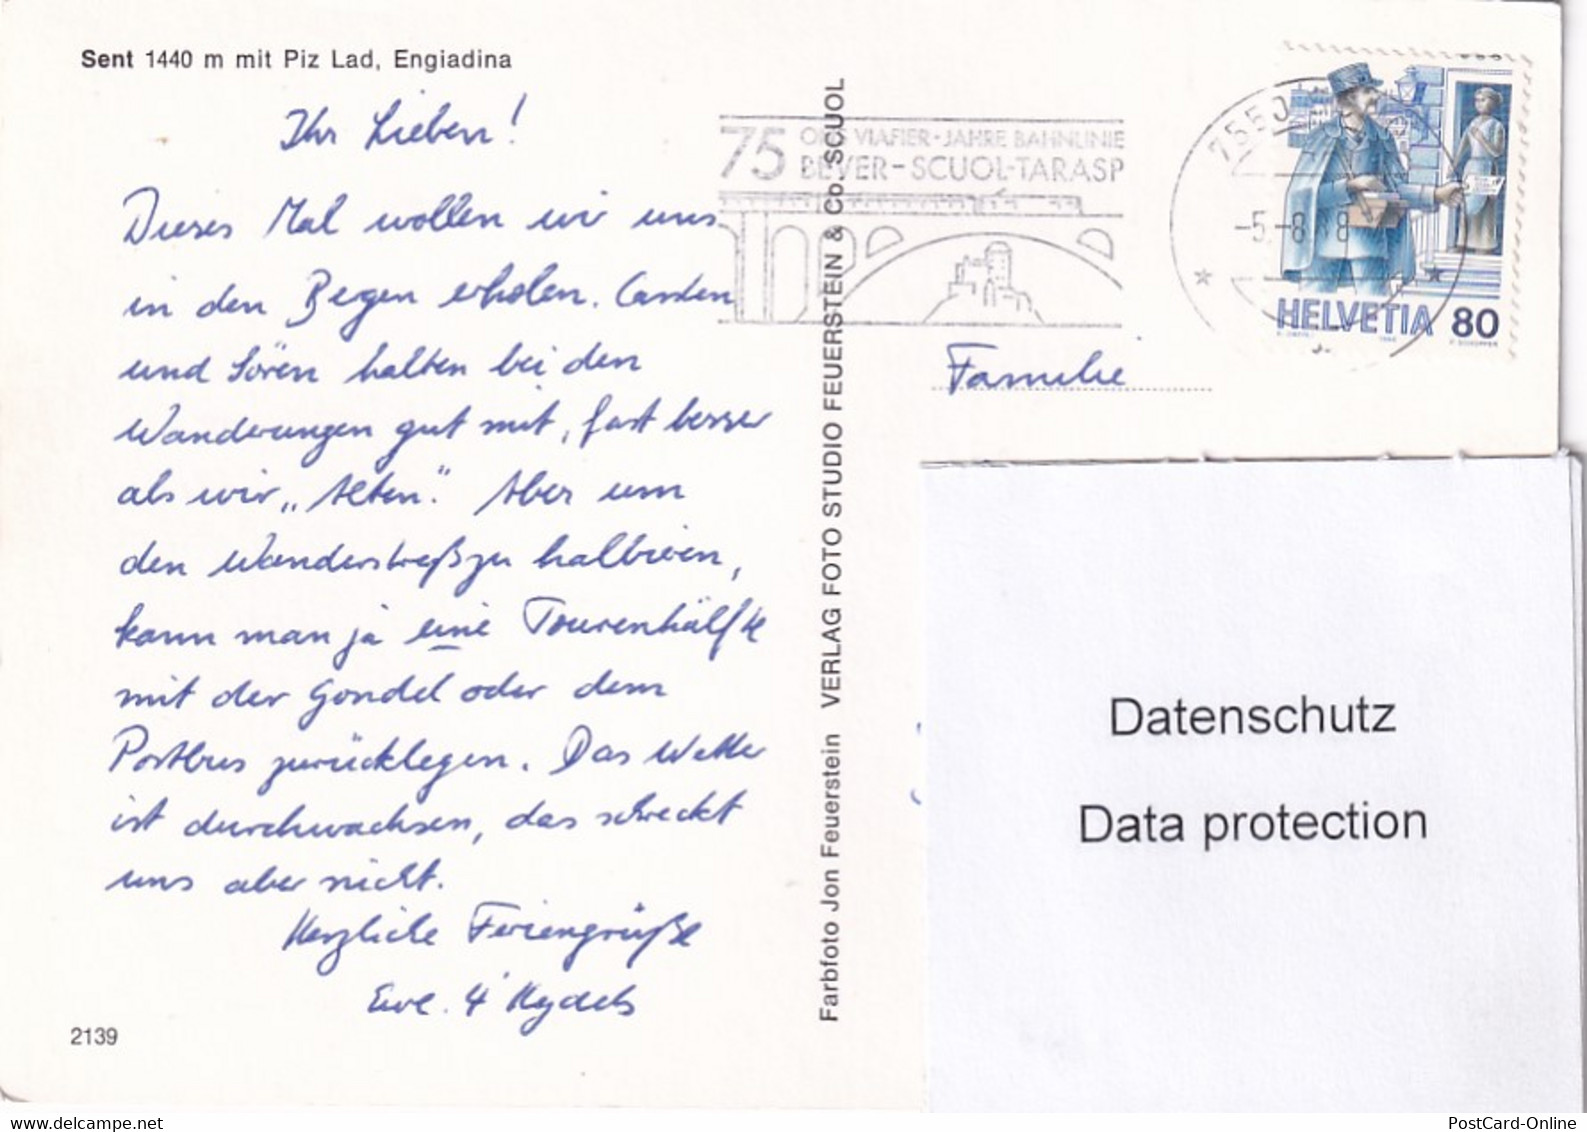 Sent 1440 m mit Piz Lad, Engiadina
Ihr Lieben!
Dieses Mal wollen wir uns
in den Bergen erholen. Carsten
und Sören halten bei den
Wanderungen gut mit, fast besser
als wir „Alten“. Aber um
den Wanderstreß zu halbieren,
kann man ja eine Tourenhälfte
mit der Gondel oder dem
Postbus zurücklegen. Das Wetter
ist durchwachsen, das schreckt
uns aber nicht.
Herzliche Feriengrüße
Eure 4
2139
Farbfoto Jon Feuerstein VERLAG FOTO STUDIO FEUERSTEIN & Co SCUOL
75 ONS VIAFIER-JAHRE BAHNLINIE
BEVER-SCUOL-TARASP
7550
-5.-8.88
HELVETIA 80
Familie
Datenschutz
Data protection
PostCard-Online